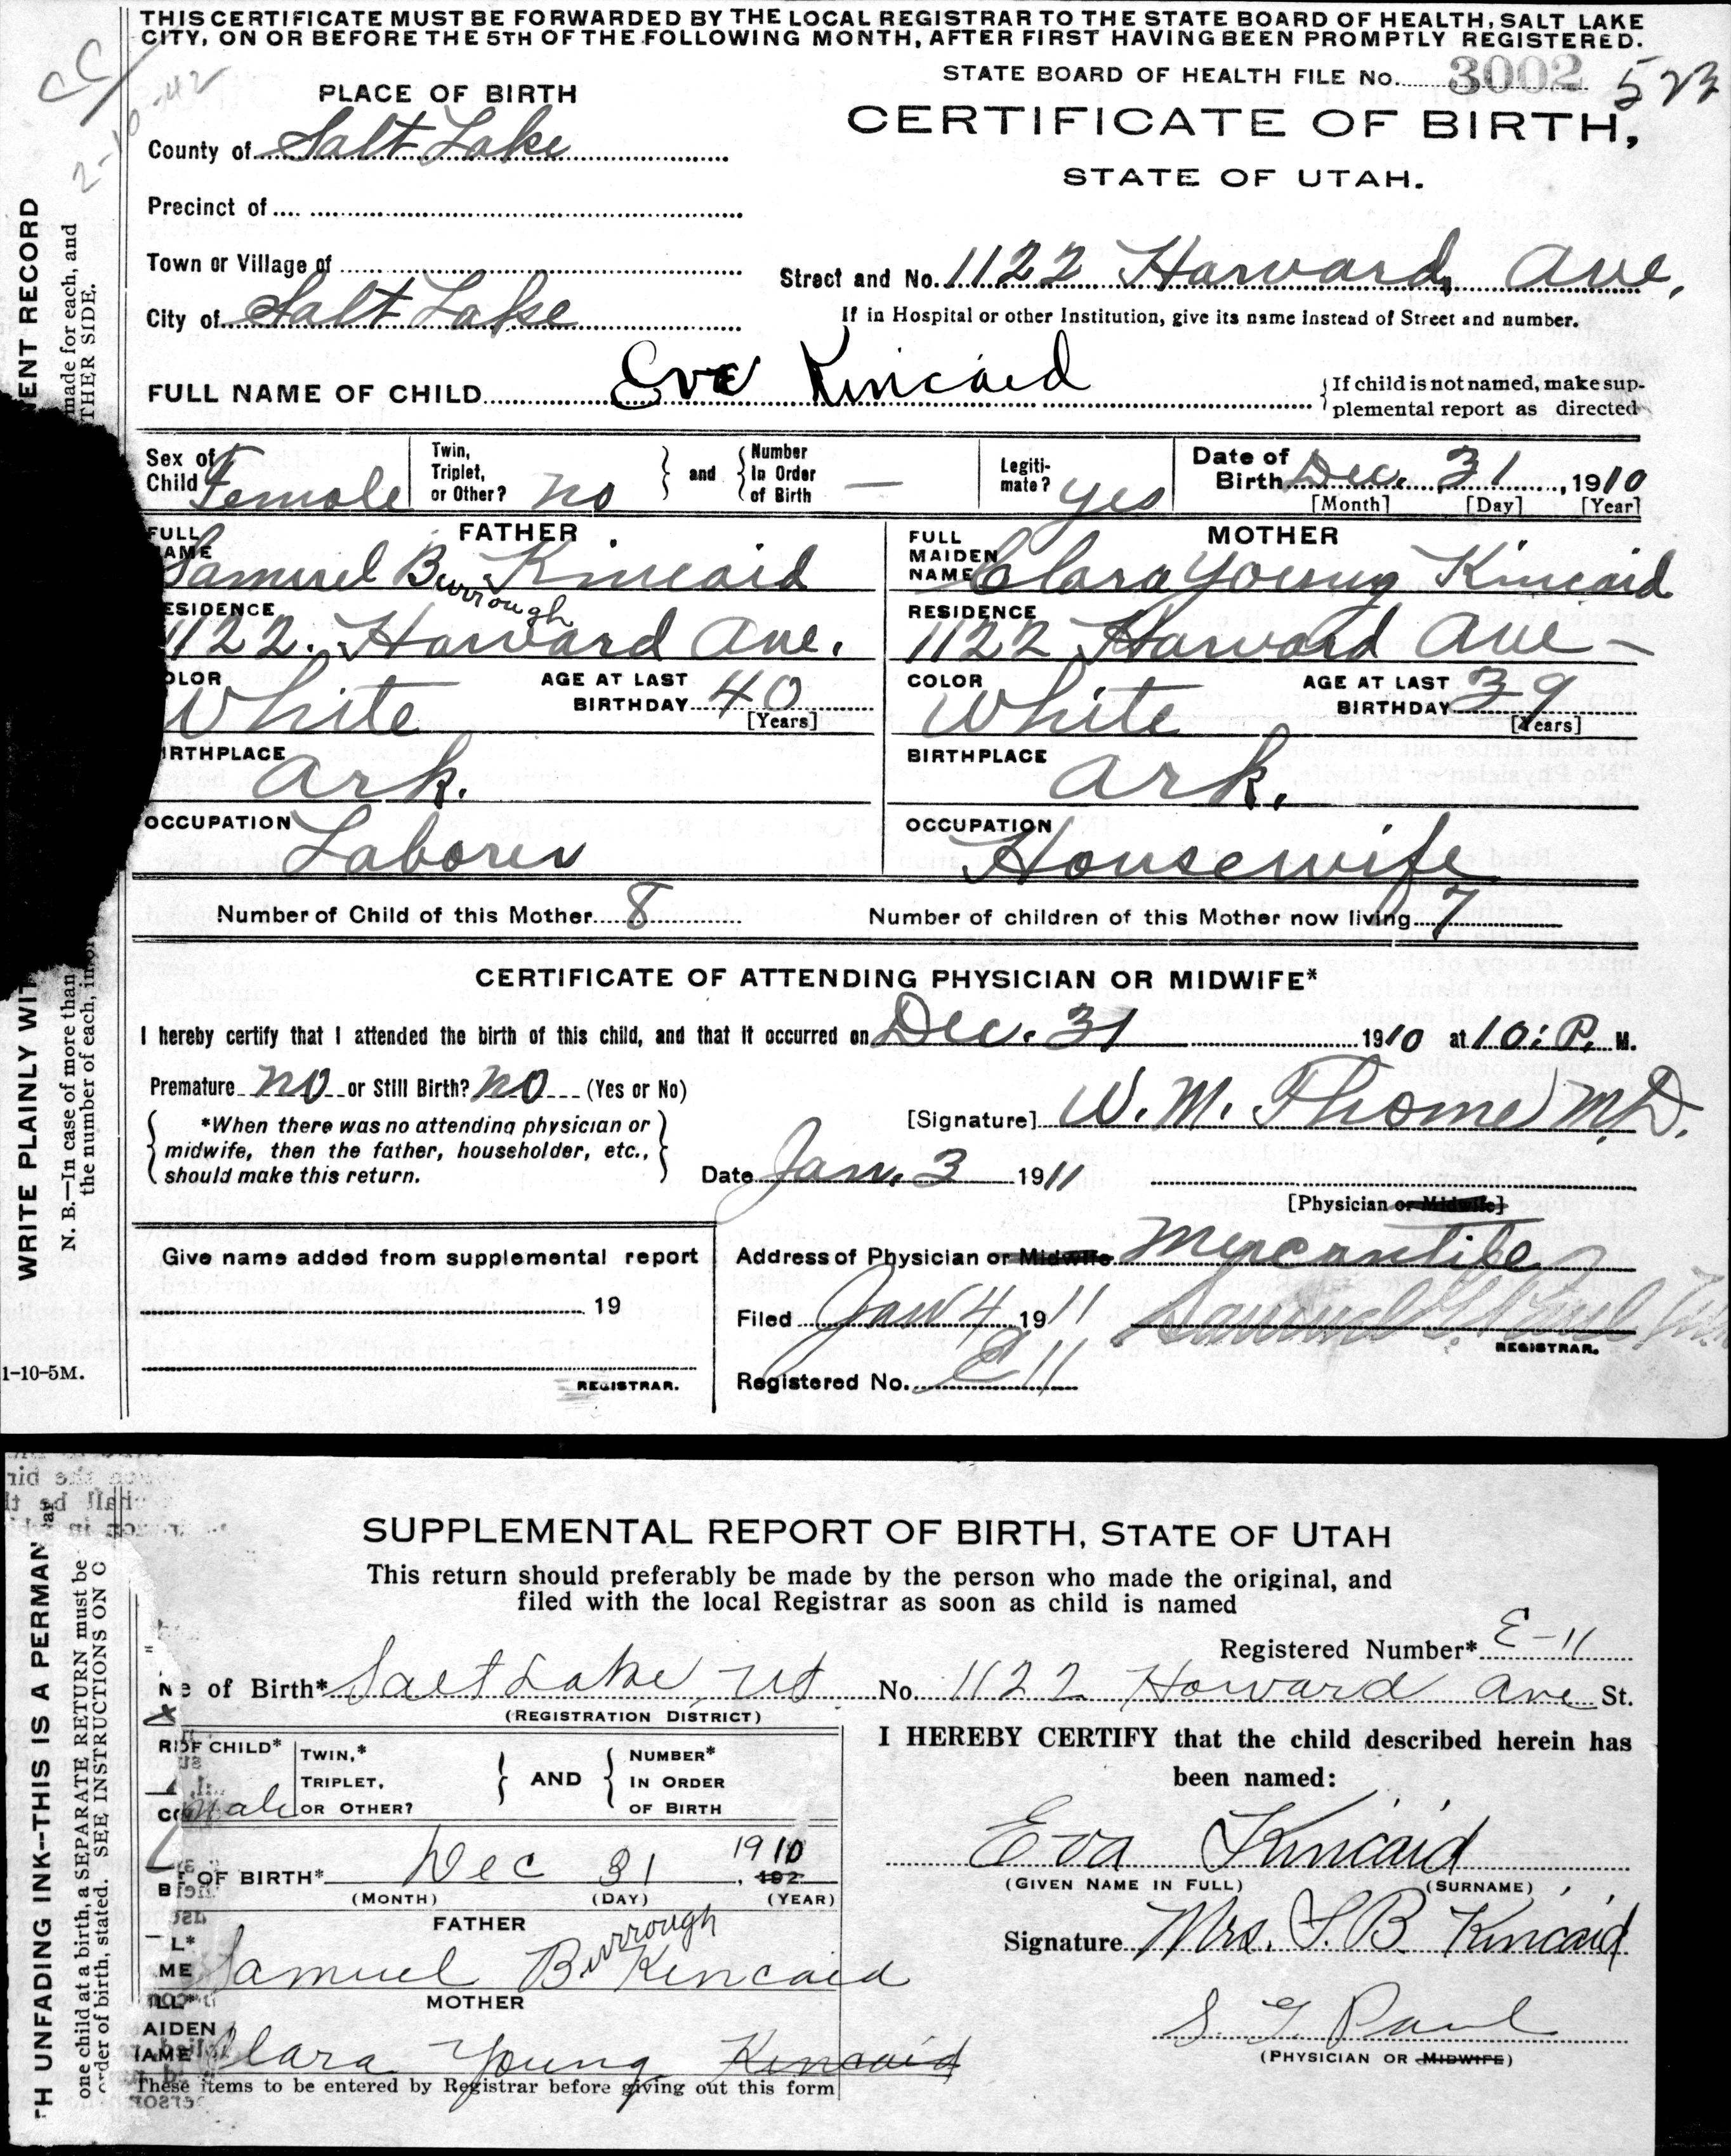 THIS CERTIFICATE MUST BE FORWARDED BY THE LOCAL REGISTRAR TO THE STATE BOARD OF HEALTH, SALT LAKE
CITY, ON OR BEFORE THE 5TH OF THE FOLLOWING MONTH, AFTER FIRST HAVING BEEN PROMPTLY REGISTERED.
2-10-42
STATE BOARD OF HEALTH FILE No. 3002 523
PLACE OF BIRTH
CERTIFICATE OF BIRTH,
STATE OF UTAH.
County of Salt Lake
Precinct of
Town or Village of
Street and No. 1122 Harvard Ave.
City of Salt Lake
If in Hospital or other Institution, give its name instead of Street and number.
FULL NAME OF CHILD Eva Kincaid
If child is not named, make sup-
plemental report as directed
Sex of Child Female
Twin, Triplet, or Other? no
and Number In Order of Birth —
Legiti-mate? yes
Date of Birth Dec. 31, 1910
[Month] [Day] [Year]
FATHER
FULL NAME Samuel B. Kincaid
Burrough
RESIDENCE
1122. Harvard Ave.
COLOR White
AGE AT LAST BIRTHDAY 40 [Years]
BIRTHPLACE Ark.
OCCUPATION Laborer
MOTHER
FULL MAIDEN NAME Clara Young Kincaid
RESIDENCE
1122 Harvard Ave —
COLOR White
AGE AT LAST BIRTHDAY 39 [Years]
BIRTHPLACE Ark.
OCCUPATION Housewife
Number of Child of this Mother 8
Number of children of this Mother now living 7
CERTIFICATE OF ATTENDING PHYSICIAN OR MIDWIFE*
I hereby certify that I attended the birth of this child, and that it occurred on Dec. 31 1910 at 10: P. M.
Premature no or Still Birth? no (Yes or No)
*When there was no attending physician or
midwife, then the father, householder, etc.,
should make this return.
[Signature] W. M. Thome M.D.
Date Jan. 3 1911
[Physician or Midwife]
Give name added from supplemental report
19
REGISTRAR.
Address of Physician or Midwife Mercantile
Filed Jan 4 1911
REGISTRAR.
Registered No. E 11
WRITE PLAINLY WIT
ENT RECORD
N. B.—In case of more than
the number of each, in
made for each, and
THER SIDE.
1-10-5M.
SUPPLEMENTAL REPORT OF BIRTH, STATE OF UTAH
This return should preferably be made by the person who made the original, and
filed with the local Registrar as soon as child is named
Registered Number* E-11
e of Birth* Salt Lake, Ut No. 1122 Howard Ave St.
(REGISTRATION DISTRICT)
OF CHILD*
male
TWIN,* TRIPLET, OR OTHER?
AND
NUMBER* IN ORDER OF BIRTH
OF BIRTH* Dec 31, 1910 192
(MONTH) (DAY) (YEAR)
FATHER
Samuel B Kincaid
Burrough
MOTHER
AIDEN
AME
Clara Young Kincaid
These items to be entered by Registrar before giving out this form
I HEREBY CERTIFY that the child described herein has
been named:
Eva Kincaid
(GIVEN NAME IN FULL) (SURNAME)
Signature Mrs. S. B. Kincaid
S. G. Paul
(PHYSICIAN OR MIDWIFE)
TH UNFADING INK--THIS IS A PERMAN
one child at a birth, a SEPARATE RETURN must be
order of birth, stated. SEE INSTRUCTIONS ON O